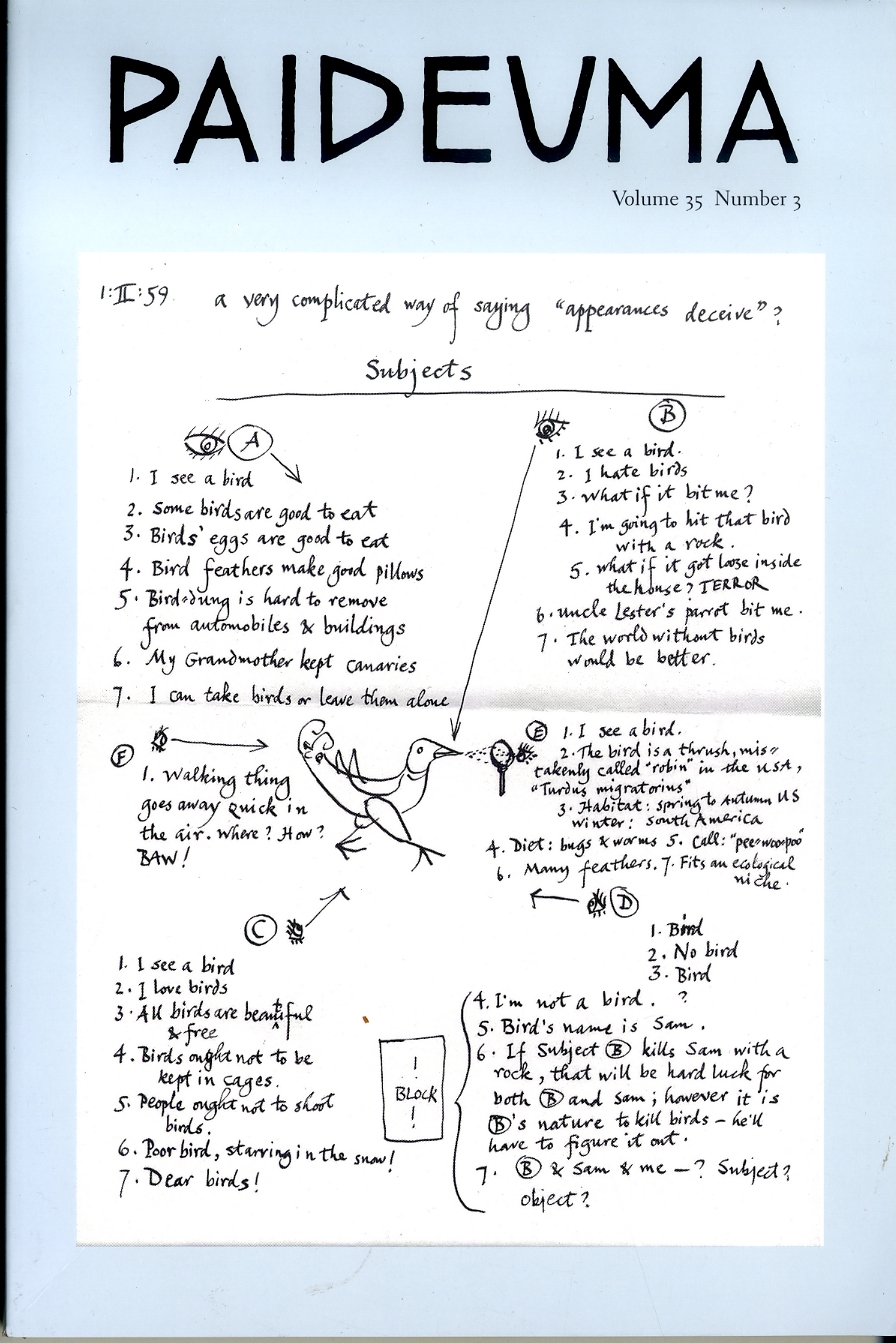 PAIDEUMA
Volume 35 Number 3
1:II:59 a very complicated way of saying "appearances deceive"?
Subjects
A
1. I see a bird
2. Some birds are good to eat
3. Birds' eggs are good to eat
4. Bird feathers make good pillows
5. Bird-dung is hard to remove
from automobiles & buildings
6. My Grandmother kept canaries
7. I can take birds or leave them alone
B
1. I see a bird.
2. I hate birds
3. What if it bit me?
4. I'm going to hit that bird
with a rock.
5. what if it got loose inside
the house? TERROR
6. uncle Lester's parrot bit me.
7. The world without birds
would be better.
F
1. Walking thing
goes away quick in
the air. Where? How?
BAW!
E
1. I see a bird.
2. The bird is a thrush, mis=
takenly called "robin" in the USA,
"Turdus migratorius"
3. Habitat: spring to Autumn US
winter: South America
4. Diet: bugs & worms 5. Call: "pee-woo-poo"
6. Many feathers. 7. Fits an ecological
niche.
C
1. I see a bird
2. I love birds
3. All birds are beautiful
& free
4. Birds ought not to be
kept in cages.
5. People ought not to shoot
birds.
6. Poor bird, starving in the snow!
7. Dear birds!
!
BLOCK
!
D
1. Bird
2. No bird
3. Bird
4. I'm not a bird. ?
5. Bird's name is Sam.
6. If Subject B kills Sam with a
rock, that will be hard luck for
both B and Sam; however it is
B's nature to kill birds – he'll
have to figure it out.
7. B & Sam & me – ? Subject?
object?